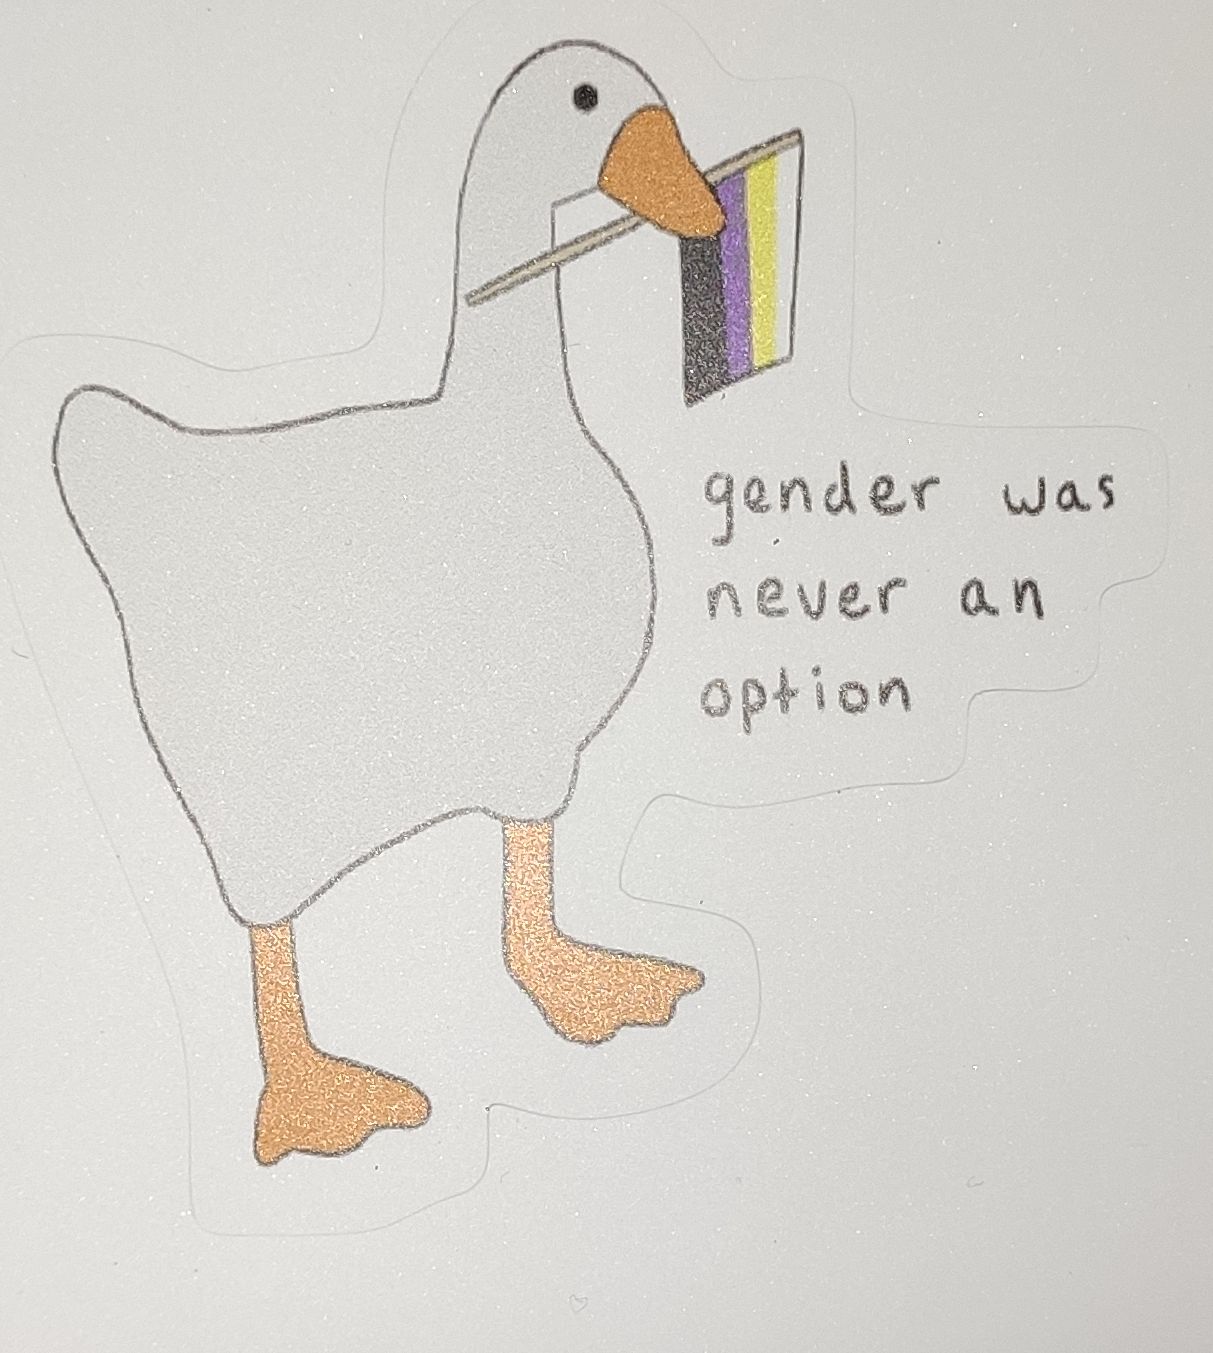 gender was
never an
option